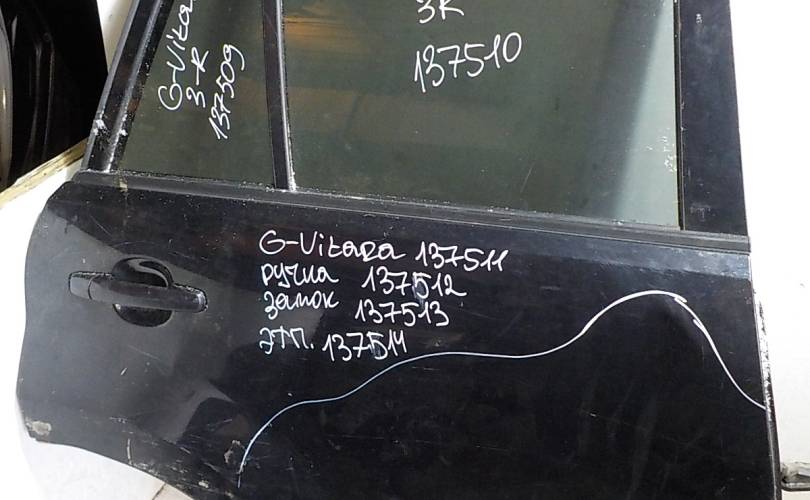 G-Vitara
3-К
137509
3К
137510
G-Vitara 137511
ручка 137512
замок 137513
этп. 137514